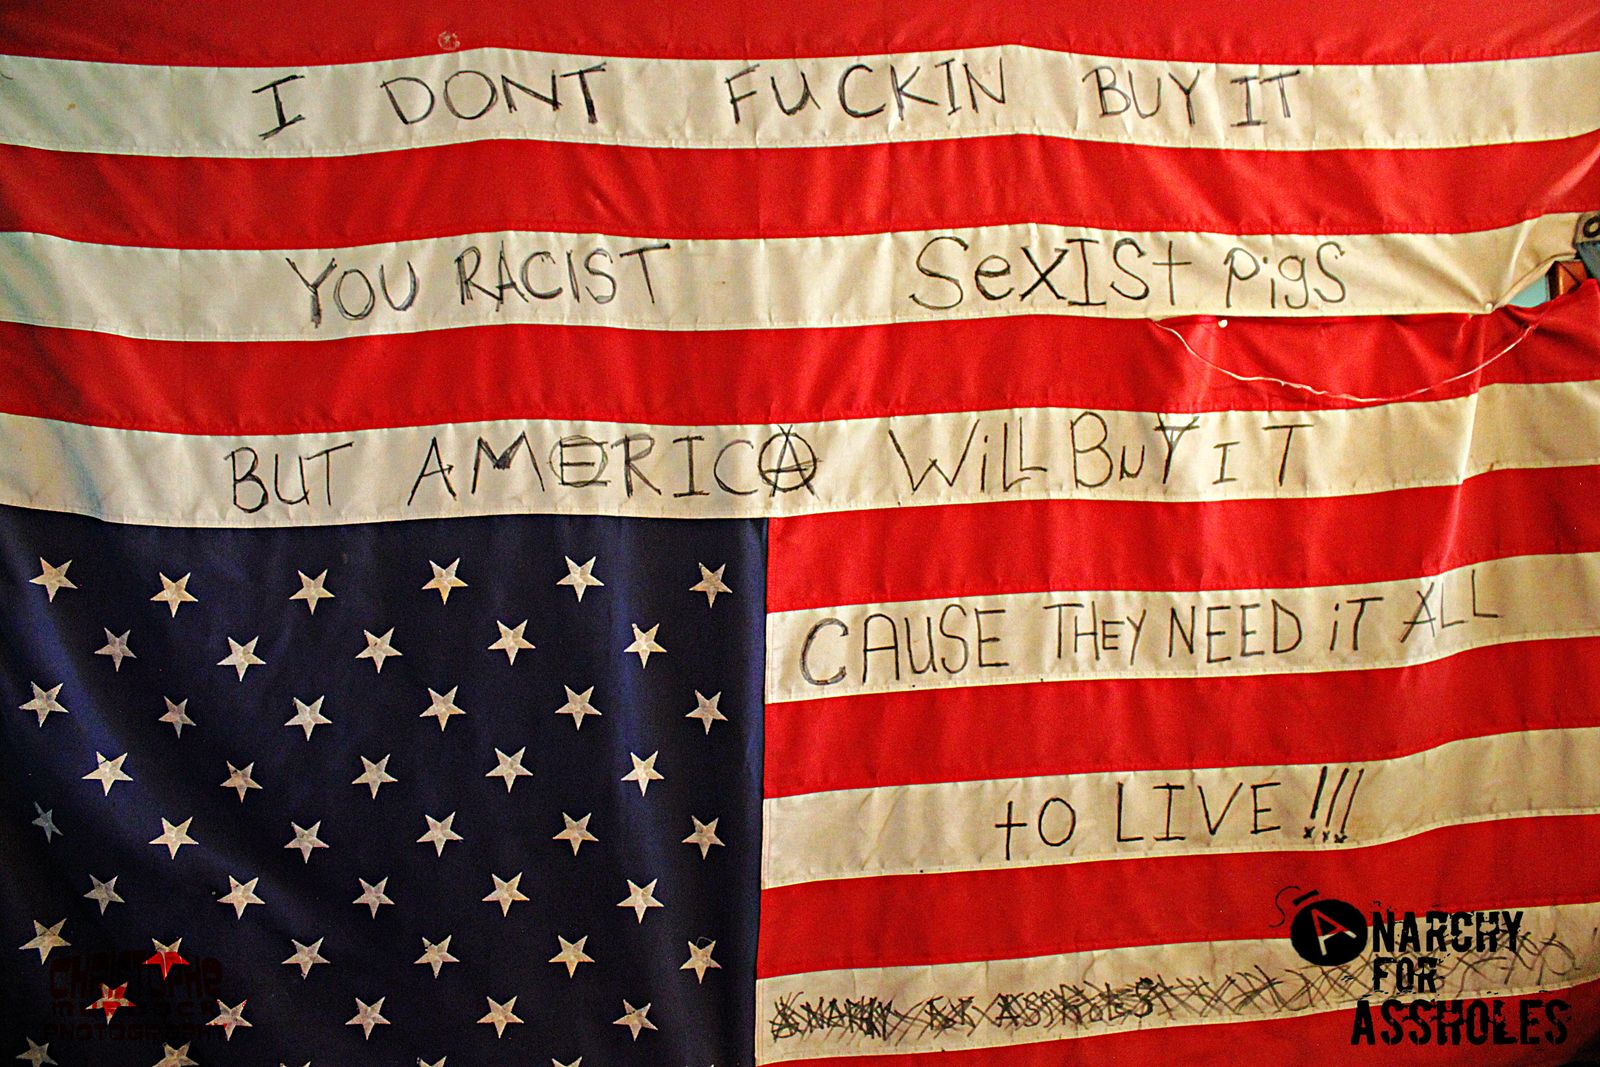 I DONT FUCKIN BUY IT
YOU RACIST SexISt pigS
BUT AMERICA WiLL BuY IT
CAUSE THEY NEED iT ALL
to LIVE!!!
ANARCHY
FOR
ASSHOLES
CHRISTOPHE
PHOTOGRAPHY